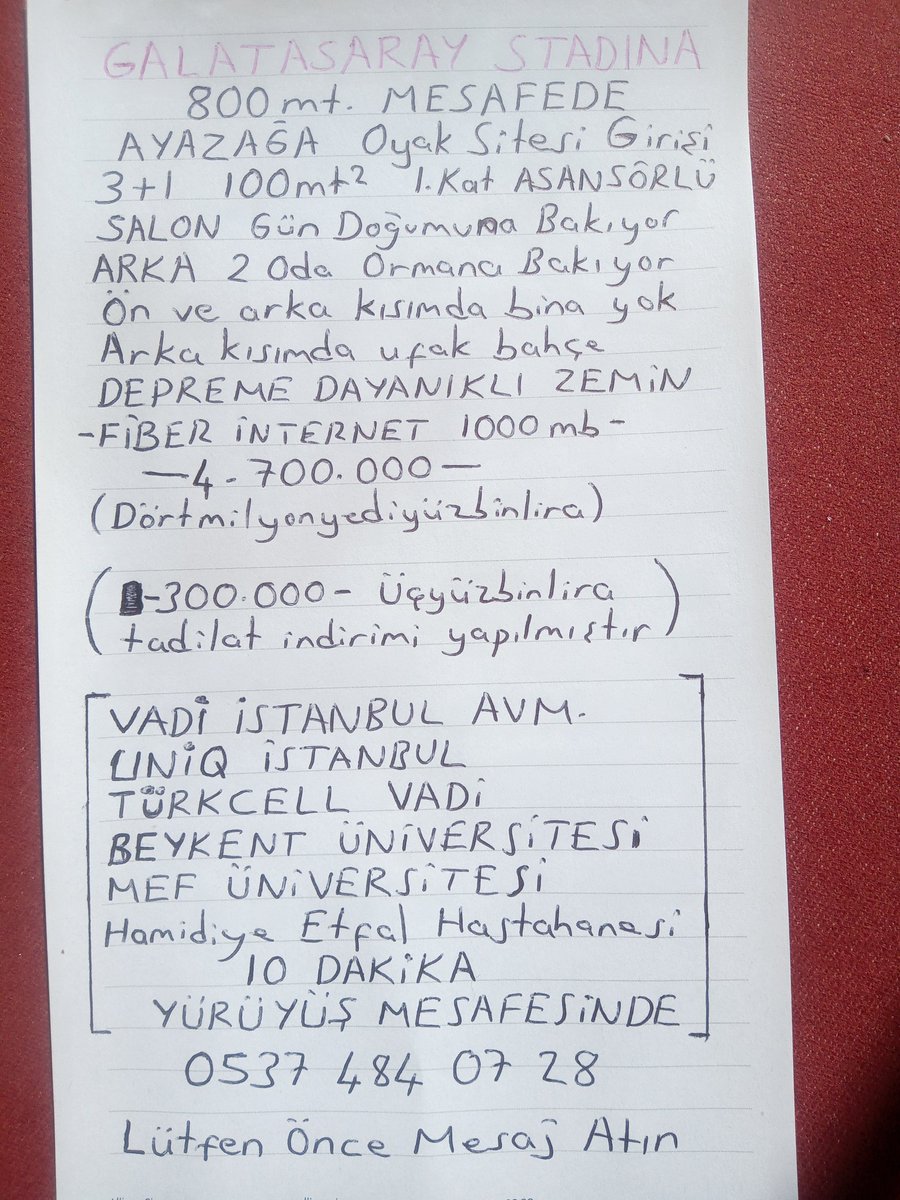 GALATASARAY STADINA
800mt. MESAFEDE
AYAZAĞA Oyak Sitesi Girişi
3+1 100mt² 1.Kat ASANSÖRLÜ
SALON Gün Doğumuna Bakıyor
ARKA 2 Oda Ormana Bakıyor
Ön ve arka kısımda bina yok
Arka kısımda ufak bahçe
DEPREME DAYANIKLI ZEMİN
-FİBER İNTERNET 1000mb-
—4.700.000—
(Dörtmilyonyediyüzbinlira)
(-300.000- Üçyüzbinlira
tadilat indirimi yapılmıştır)
VADİ İSTANBUL AVM.
UNİQ İSTANBUL
TÜRKCELL VADİ
BEYKENT ÜNİVERSİTESİ
MEF ÜNİVERSİTESİ
Hamidiye Etfal Hastahanesi
10 DAKİKA
YÜRÜYÜŞ MESAFESİNDE
0537 484 07 28
Lütfen Önce Mesaj Atın